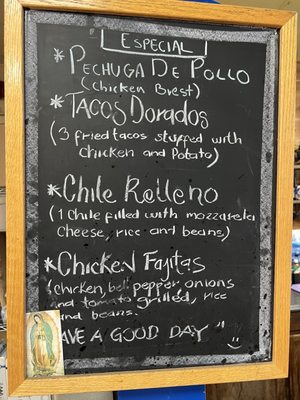 ESPECIAL
* PECHUGA DE POLLO
(Chicken Brest)
* TACOS DORADOS
(3 fried tacos stuffed with
chicken and Potato)
* Chile Relleno
(1 Chile filled with mozzarela
cheese, rice and beans)
* Chicken Fajitas
(chicken, bell pepper onions
and tomato grilled, rice
and beans.
HAVE A GOOD DAY "